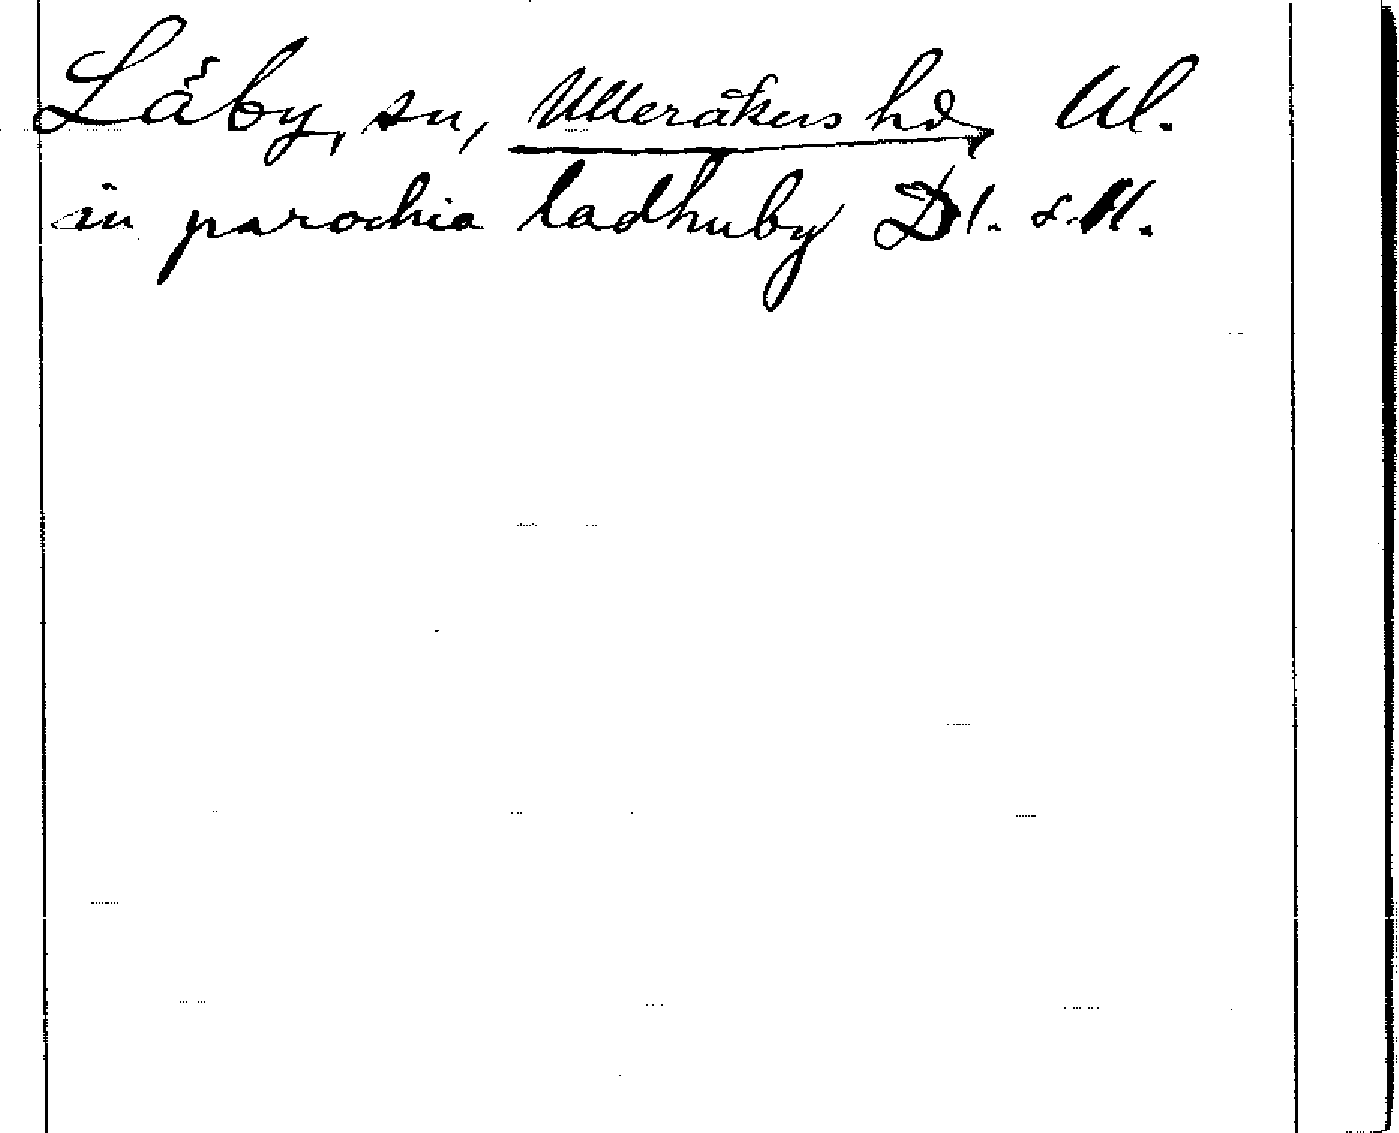 Låby, sn, Ulleråkers hd, Ul.
in parochia ladhuby